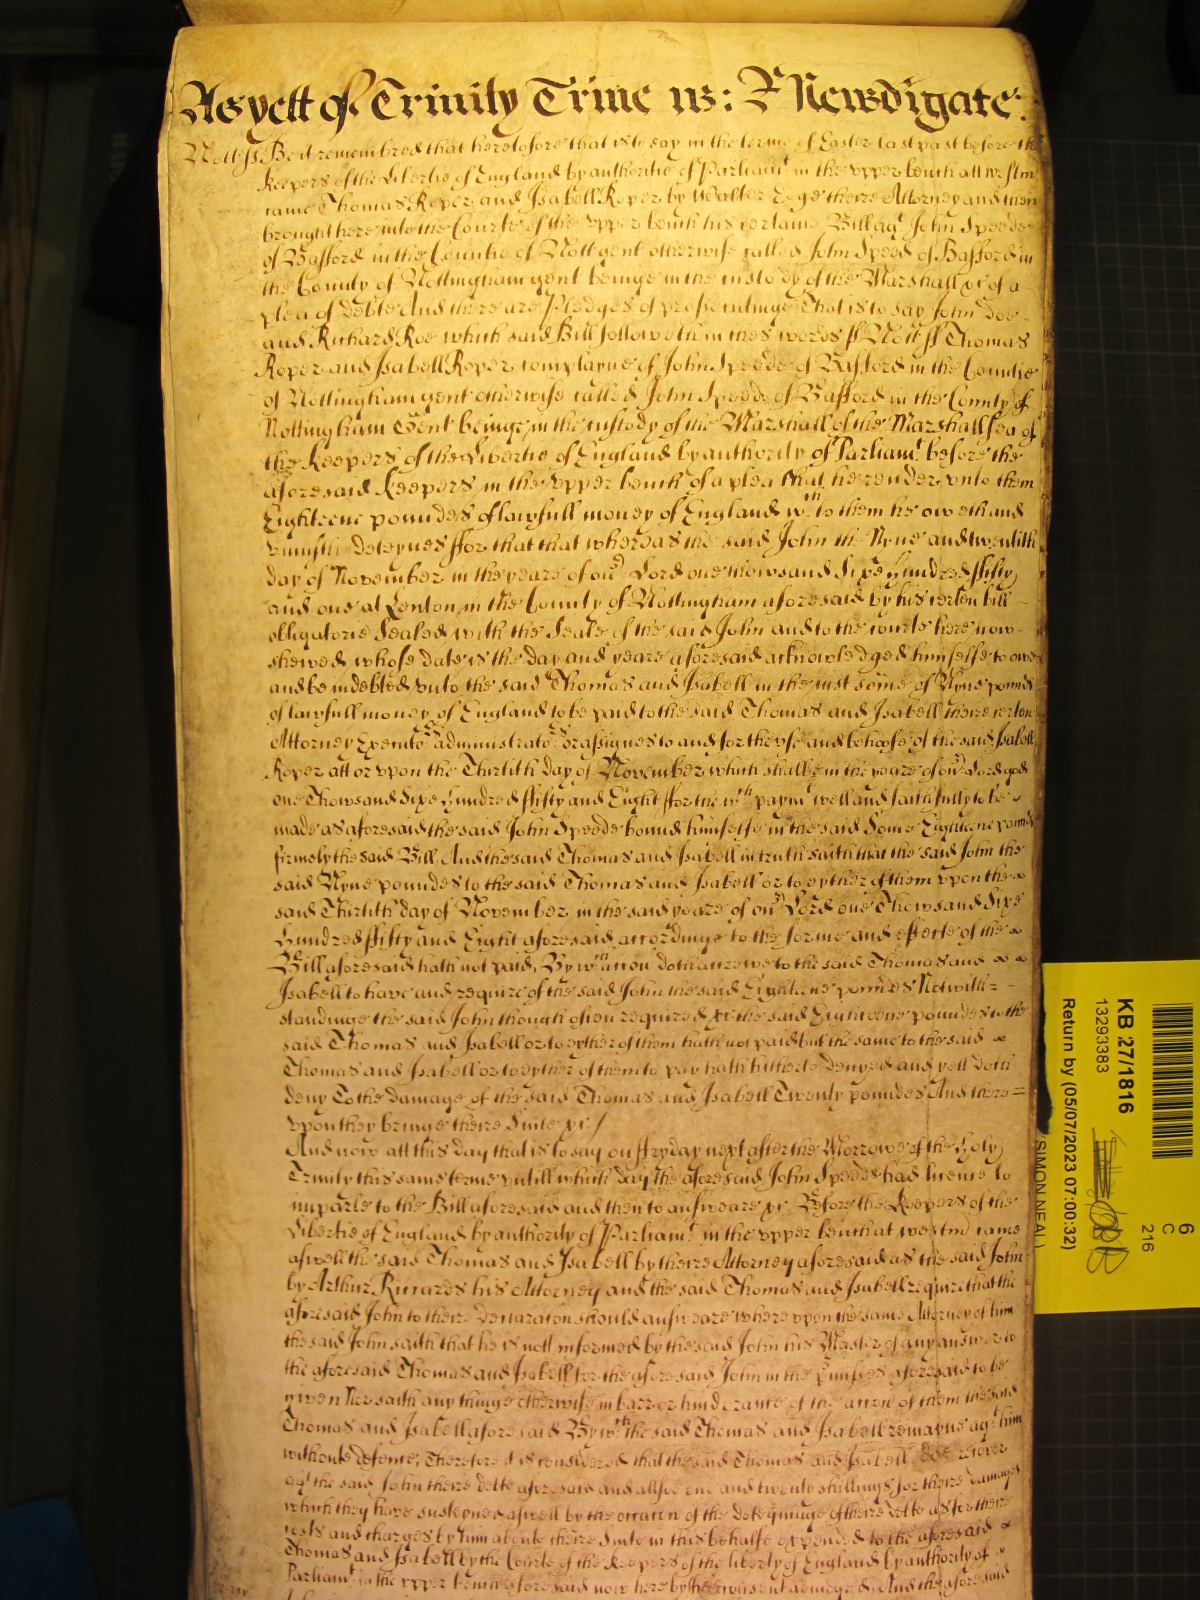 As yett of Trinity Terme ws: P Newdigate:
Nott ss Be it remembred that heretofore that is to say in the terme of Easter last past before the
Keepers of the Libertie of England by authoritie of Parliamt in the vpper bench att Westm
came Thomas Roper and Isabell Roper by Walter Ege theire Attorney and then
brought here into the Courte of the vpper bench his certaine Bill agt John Speede
of Basford in the Countie of Nott gent otherwise called John Speed of Basford in
the County of Nottingham gent beinge in the custody of the Marshall xc of a
plea of debte And there are Pledges of prosecutinge That is to say John doe
and Richard Roe which said Bill followeth in thes words ss Nott ss Thomas
Roper and Isabell Roper complayne of John Speede of Basford in the Countie
of Nottingham gent otherwise called John Speede of Basford in the County of
Nottingham Gent beinge in the custody of the Marshall of the Marshallsea of
the Keepers of the Libertie of England by authority of Parliamt before the
aforesaid Keepers in the vpper bench of a plea that he render vnto them
Eighteene poundes of lawfull money of England wch to them he oweth and
vniustly deteynes ffor that that whereas the said John the Nyne and twentith
day of November in the yeare of our Lord one thowsand Sixe Hundred ffifty
and one at Lenton in the County of Nottingham aforesaid by his certen bill
obligatorie Sealed with the Seale of the said John and to the courte here now
shewed whose date is the day and yeare aforesaid acknowledged himselfe to owe
and be indebted vnto the said Thomas and Isabell in the iust some of Nyne pounds
of lawfull money of England to be paid to the said Thomas and Isabell theire certen
Attorney Executors administrators or assignes to and for the vse and behoofe of the said Isabell
Roper att or vpon the Thirtith day of November which shalbe in the yeare of our Lord god
one Thowsand Sixe Hundred ffifty and Eight ffor the wch paymt well and faithfully to be
made as aforesaid the said John Speede bound himselfe in the said Some Eighteene pounds
firmely the said Bill And the said Thomas and Isabell in truth saith that the said John the
said Nyne poundes to the said Thomas and Isabell or to eyther of them vpon the
said Thirtith day of November in the said yeare of our Lord one Thowsand Sixe
Hundred ffifty and Eight aforesaid accordinge to the forme and effecte of the
Bill aforesaid hath not paid, By wch accon doth accrewe to the said Thomas and
Isabell to have and require of the said John the said Eighteene poundes Notwith=
standinge the said John though often required xc the said Eighteene poundes to the
said Thomas and Isabell or to eyther of them hath not paid but the same to the said
Thomas and Isabell or to eyther of them to pay hath hitherto denyed and yett doth
deny To the damage of the said Thomas and Isabell Twenty poundes And there=
vpon they bringe theire Suite xc /
And now att this day that is to say on ffryday next after the Morrowe of the Holy
Trinity this same terme vntill which day the aforesaid John Speede had licence to
imparle to the Bill aforesaid and then to answeare xc Before the Keepers of the
Libertie of England by authority of Parliamt in the vpper bench at Westm came
aswell the said Thomas and Isabell by theire Attorney aforesaid as the said John
by Arthur Ricards his Attorney and the said Thomas and Isabell require that the
aforesaid John to theire Declaracon should answeare where vpon the same Attorney of him
the said John saith that he is not informed by the said John his Master of any answer to
the aforesaid Thomas and Isabell for the aforesaid John in the p'misses aforesaid to be
given Nor saith any thinge otherwise in barr or hinderance of the accon of them the said
Thomas and Isabell aforesaid By wch the said Thomas and Isabell remayne agt him
without defence, Therefore it is considered that the said Thomas and Isabell doe recover
agt the said John theire debte aforesaid and allsoe one and twenty shillings for theire damages
which they have susteyned aswell by the occacon of the deteyninge of theire debte as for their
costs and charges by him about theire Suite in this behalfe expended to the aforesaid
Thomas and Isabell by the Courte of the Keepers of the liberty of England by authority of
Parliamt in the vpper bench aforesaid now here by theire consent adiudged, And the aforesaid
KB 27/1816
13293383
Return by (05/07/2023 07:00:32)
(SIMON NEAL)
6
C
216